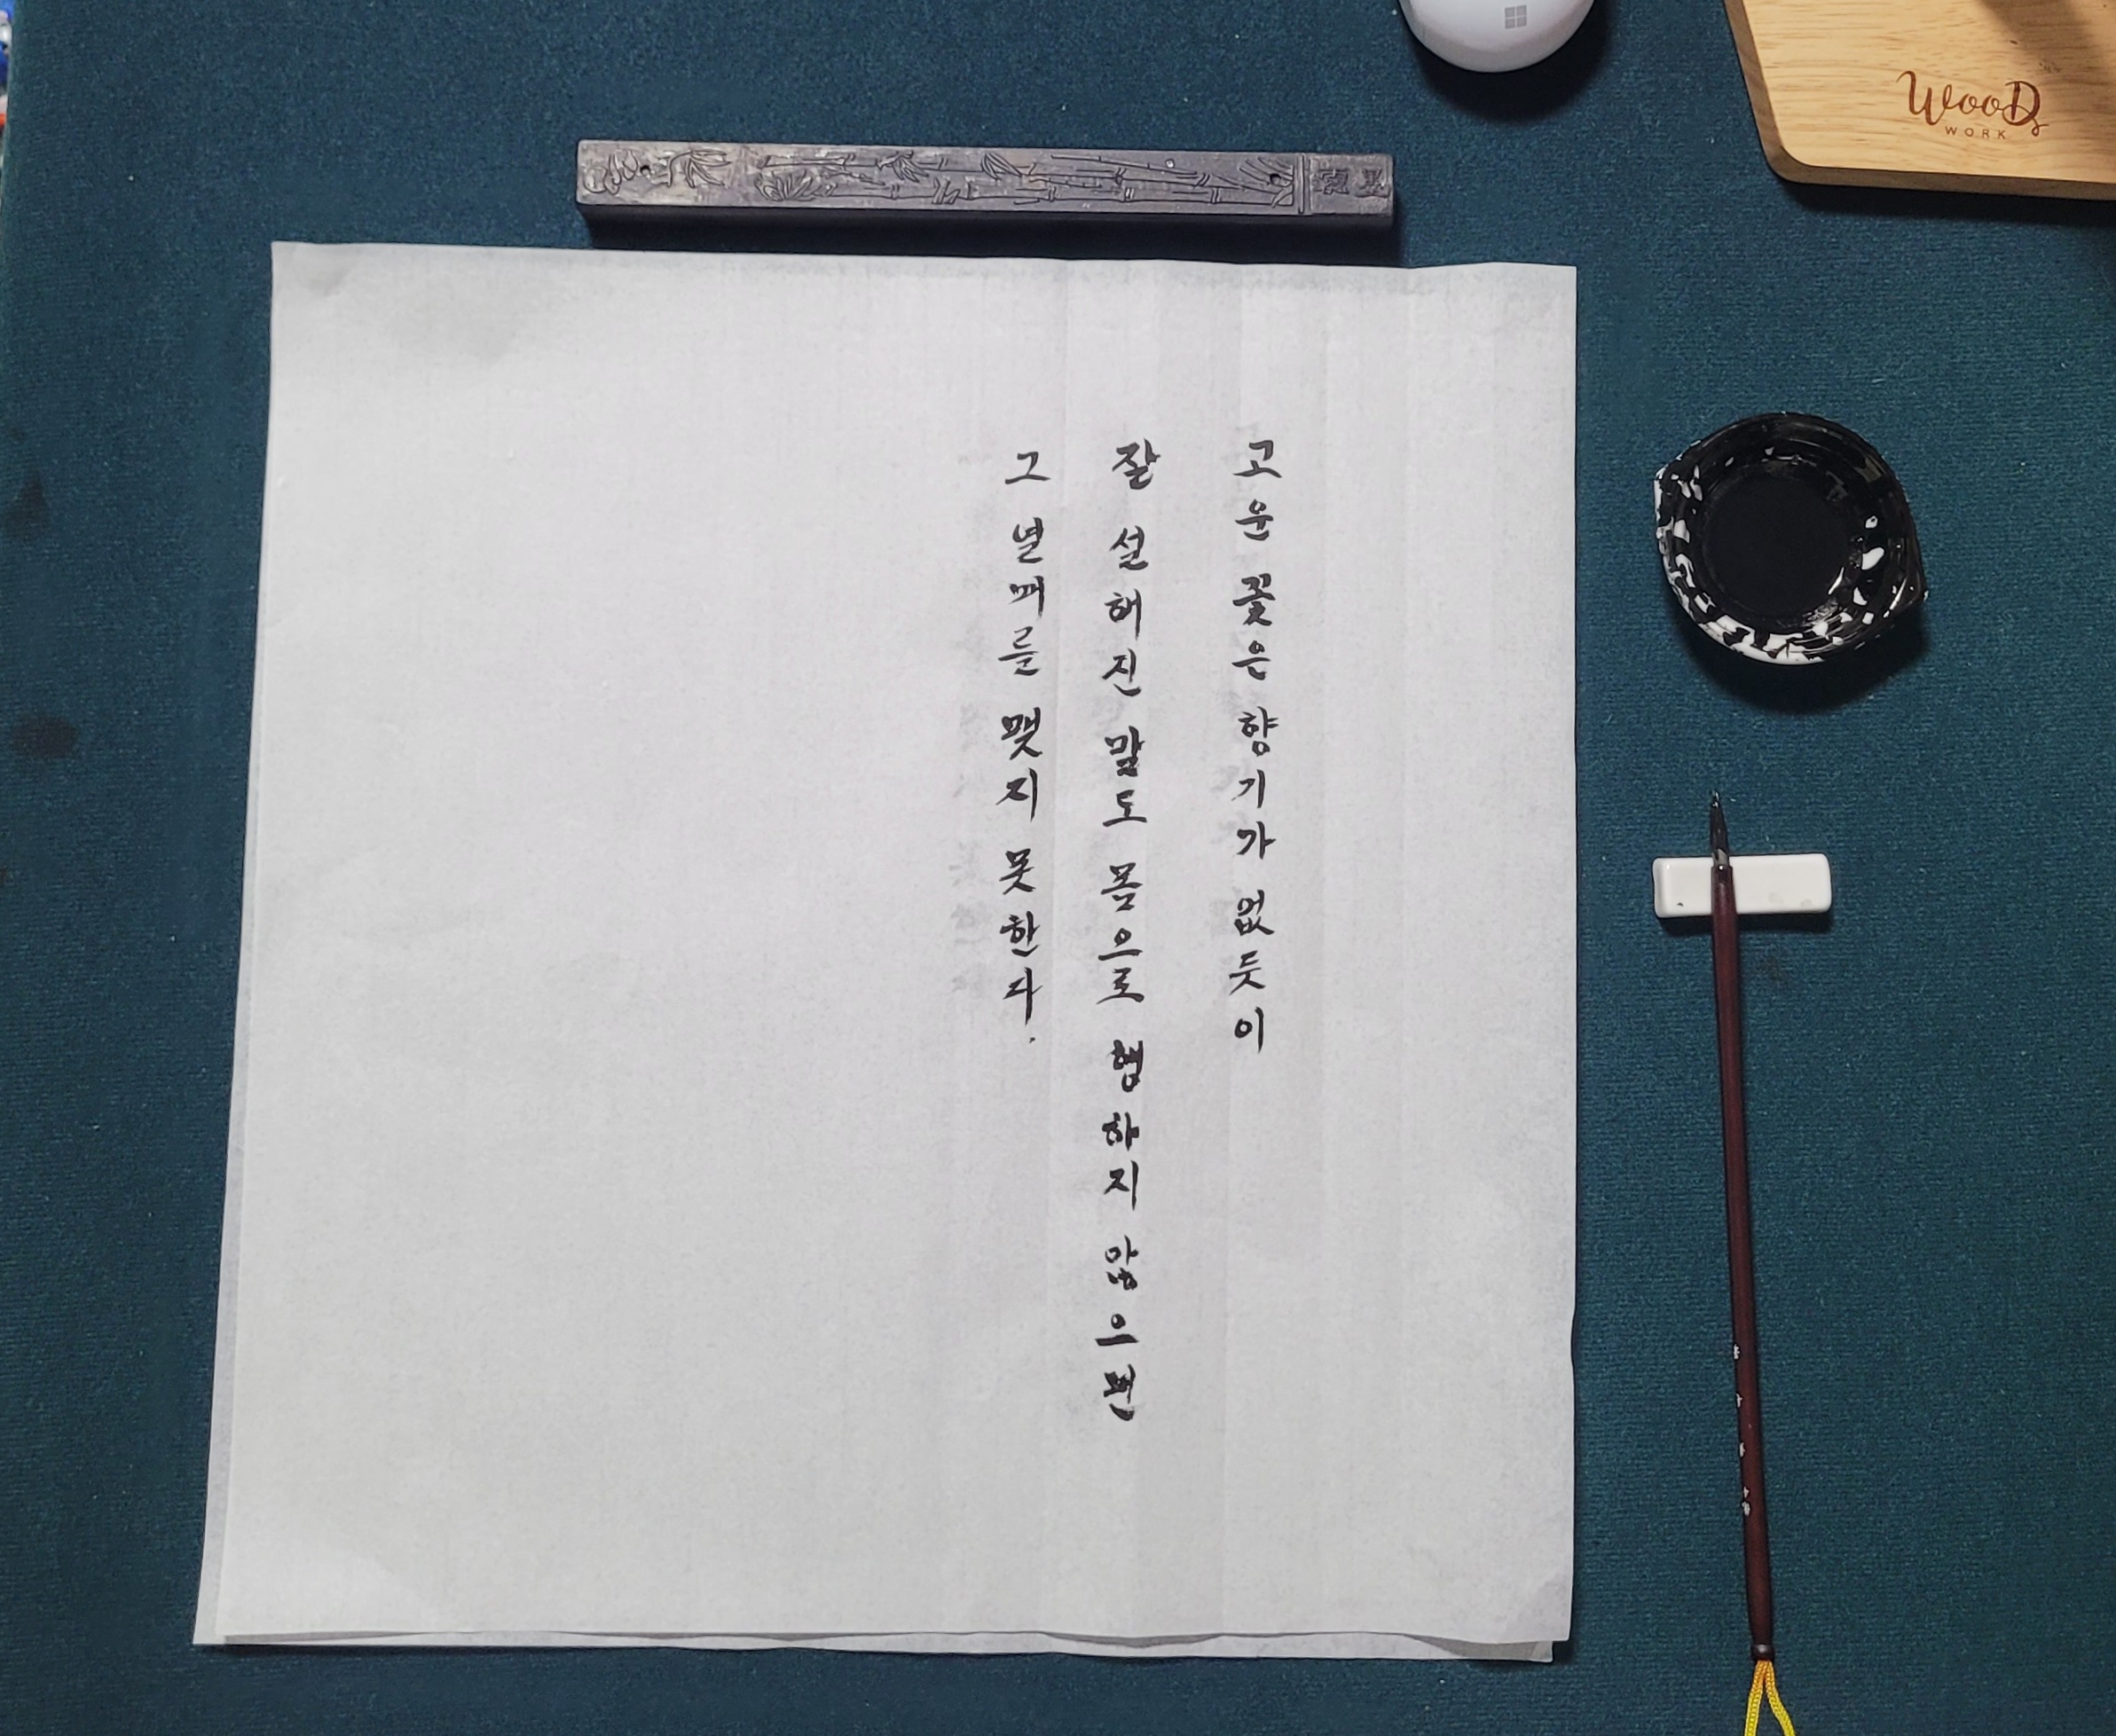 Wood
WORK
고운 꽃은 향기가 없듯이
잘 설해진 말도 몸으로 행하지 않으면
그 열매를 맺지 못한다.